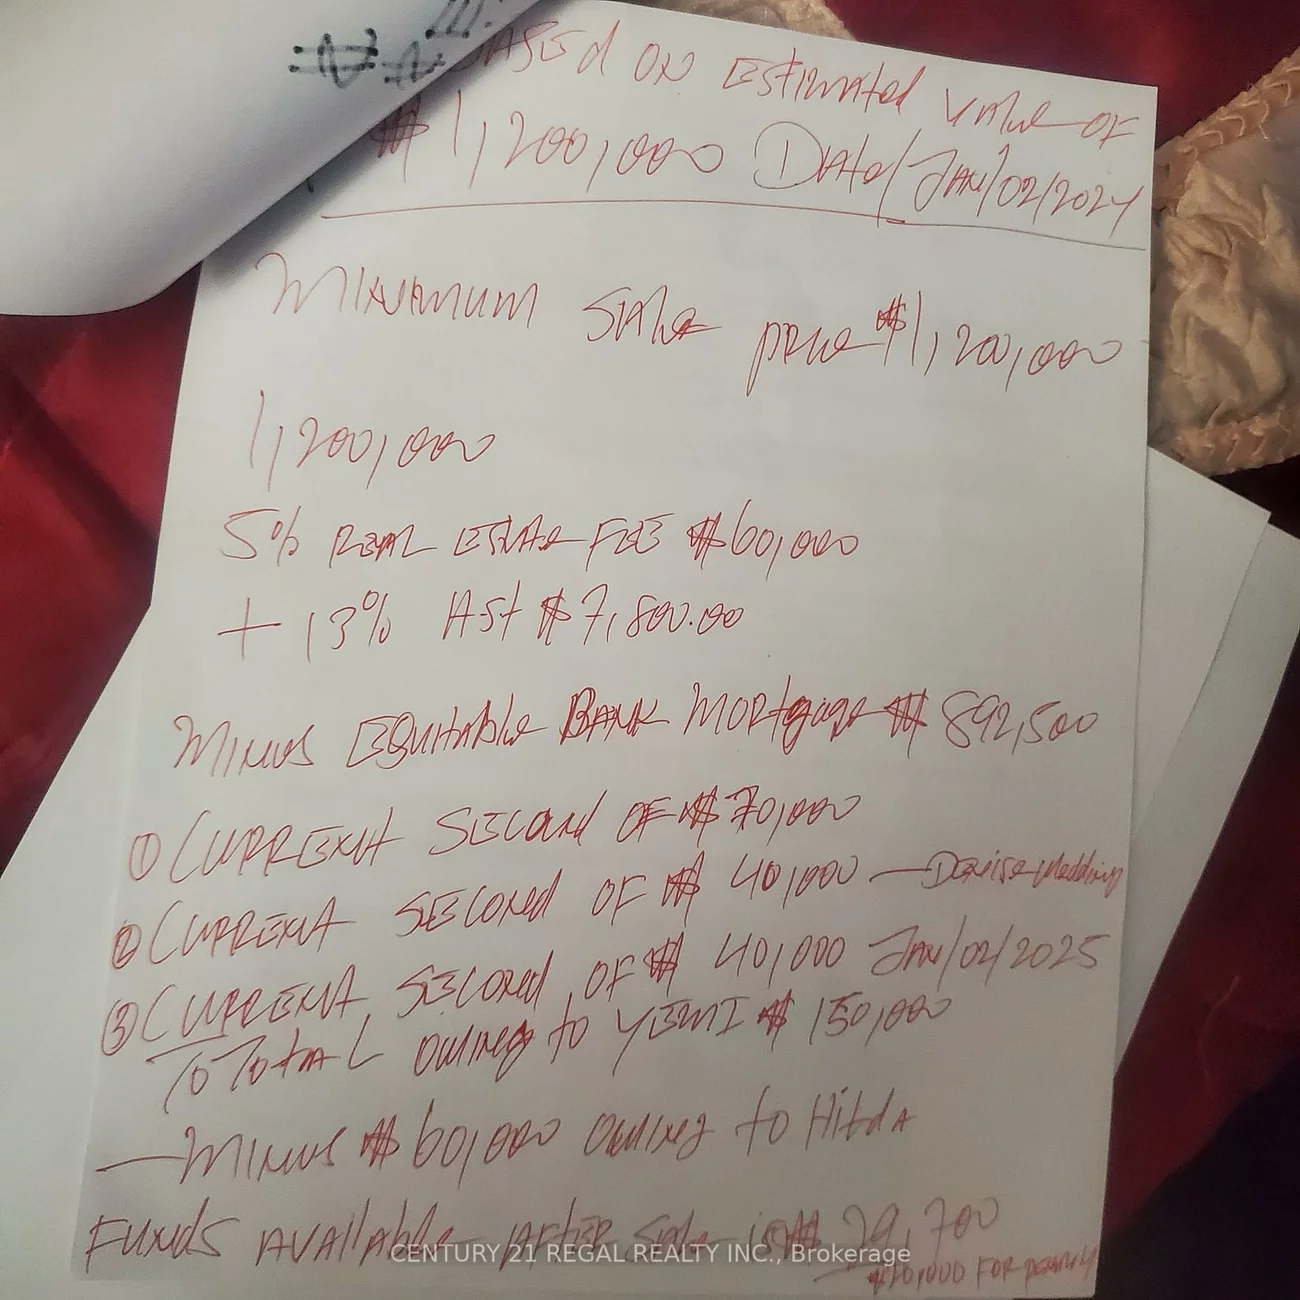 BASEd ON Estimated value OF
$ 1,200,000 Date/JAN/02/2024
MINIMUM Sale price $1,200,000
1,200,000
5% REAL EState FEE $60,000
+ 13% HSt $7,800.00
MINUS EQUitable BANK MORtgage $ 892,500
① CURRENt SECONd OF $70,000
② CURRENt SECONd OF $ 40,000 — Denise wedding
③ CURRENt SECONd OF $ 40,000 JAN/02/2025
TO TOtAL OWINg to YEMI $ 150,000
— MINUS $60,000 OWINg to HildA
FUNdS AVAIlAble AFtER Sale is $ 29,700
$10,000 FOR
CENTURY 21 REGAL REALTY INC., Brokerage